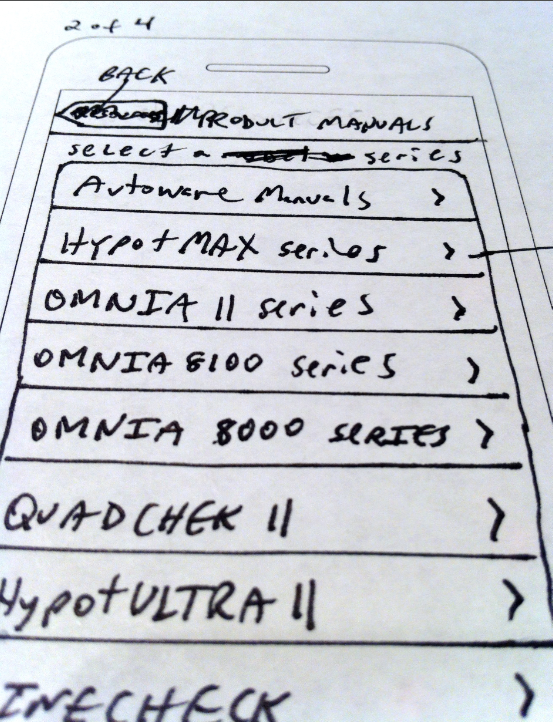 2 of 4
BACK
PRODUCT MANUALS
select a series
Autoware Manuals >
HypotMAX series >
OMNIA II series >
OMNIA 8100 series >
OMNIA 8000 SERIES >
QUADCHEK II >
HypotULTRA II >
INECHECK >